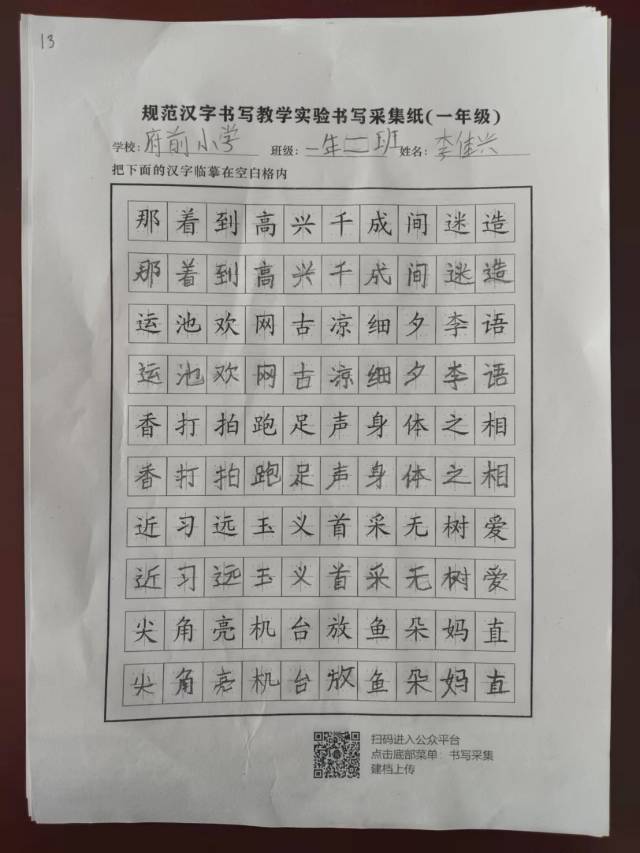 13
规范汉字书写教学实验书写采集纸(一年级)
学校:府前小学 班级:一年二班 姓名:李佳兴
把下面的汉字临摹在空白格内
那着到高兴千成间迷造
那着到高兴千成间迷造
运池欢网古凉细夕李语
运池欢网古凉细夕李语
香打拍跑足声身体之相
香打拍跑足声身体之相
近习远玉义首采无树爱
近习远玉义首采无树爱
尖角亮机台放鱼朵妈直
尖角亮机台放鱼朵妈直
扫码进入公众平台
点击底部菜单:书写采集
建档上传